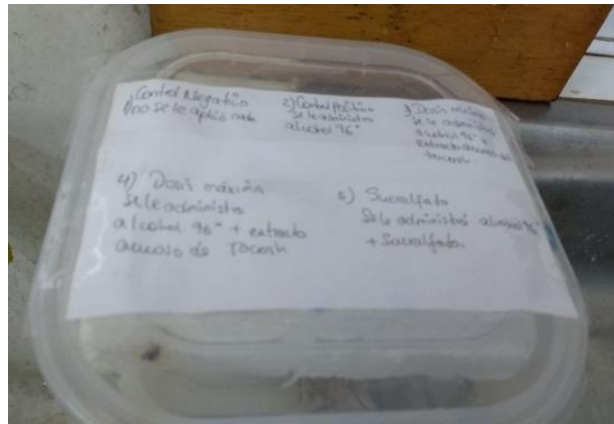 1) Control Negativo
no se le aplicó nada
2) Control Positivo
se le administro
alcohol 96°
3) Dosis mínima
se le administró
alcohol 96° +
extracto acuoso de
tocosh
4) Dosis máxima
se le administro
alcohol 96° + extracto
acuoso de Tocosh
5) Sucralfato
Se le administró alcohol 96°
+ Sucralfato.